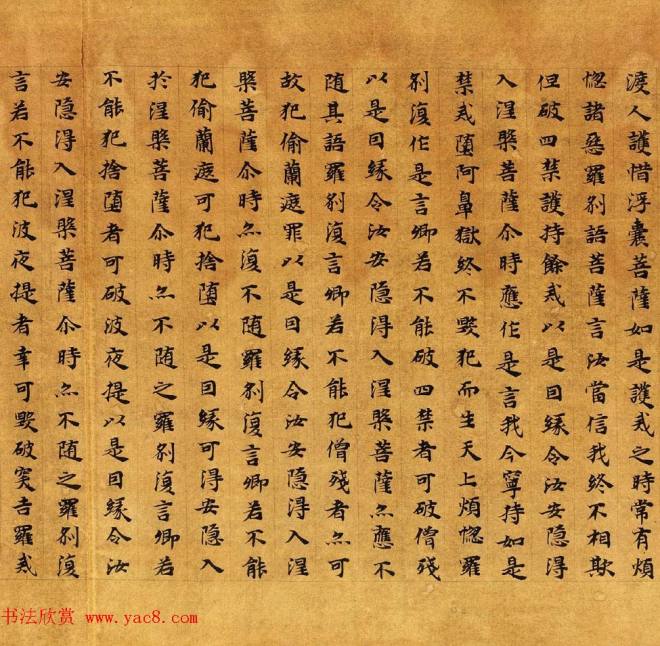 渡人護惜浮囊菩薩如是護戒之時常有煩
惚諸惡羅刹語菩薩言汝當信我終不相欺
但破四禁護持餘戒以是因緣令汝安隱得
入涅槃菩薩尒時應作是言我今寧持如是
禁戒墮阿鼻獄終不毀犯而生天上煩惚羅
刹復作是言卿若不能破四禁者可破僧殘
以是因緣令汝安隱得入涅槃菩薩亦應不
隨其語羅刹復言卿若不能犯僧殘者亦可
故犯偷蘭遮罪以是因緣令汝安隱得入涅
槃菩薩尒時亦復不隨羅刹復言卿若不能
犯偷蘭遮可犯捨墮以是因緣可得安隱入
於涅槃菩薩尒時亦不隨之羅刹復言卿若
不能犯捨墮者可破波夜提以是因緣令汝
安隱得入涅槃菩薩尒時亦不隨之羅刹復
言若不能犯波夜提者幸可毀破突吉羅戒
书法欣赏 www.yac8.com